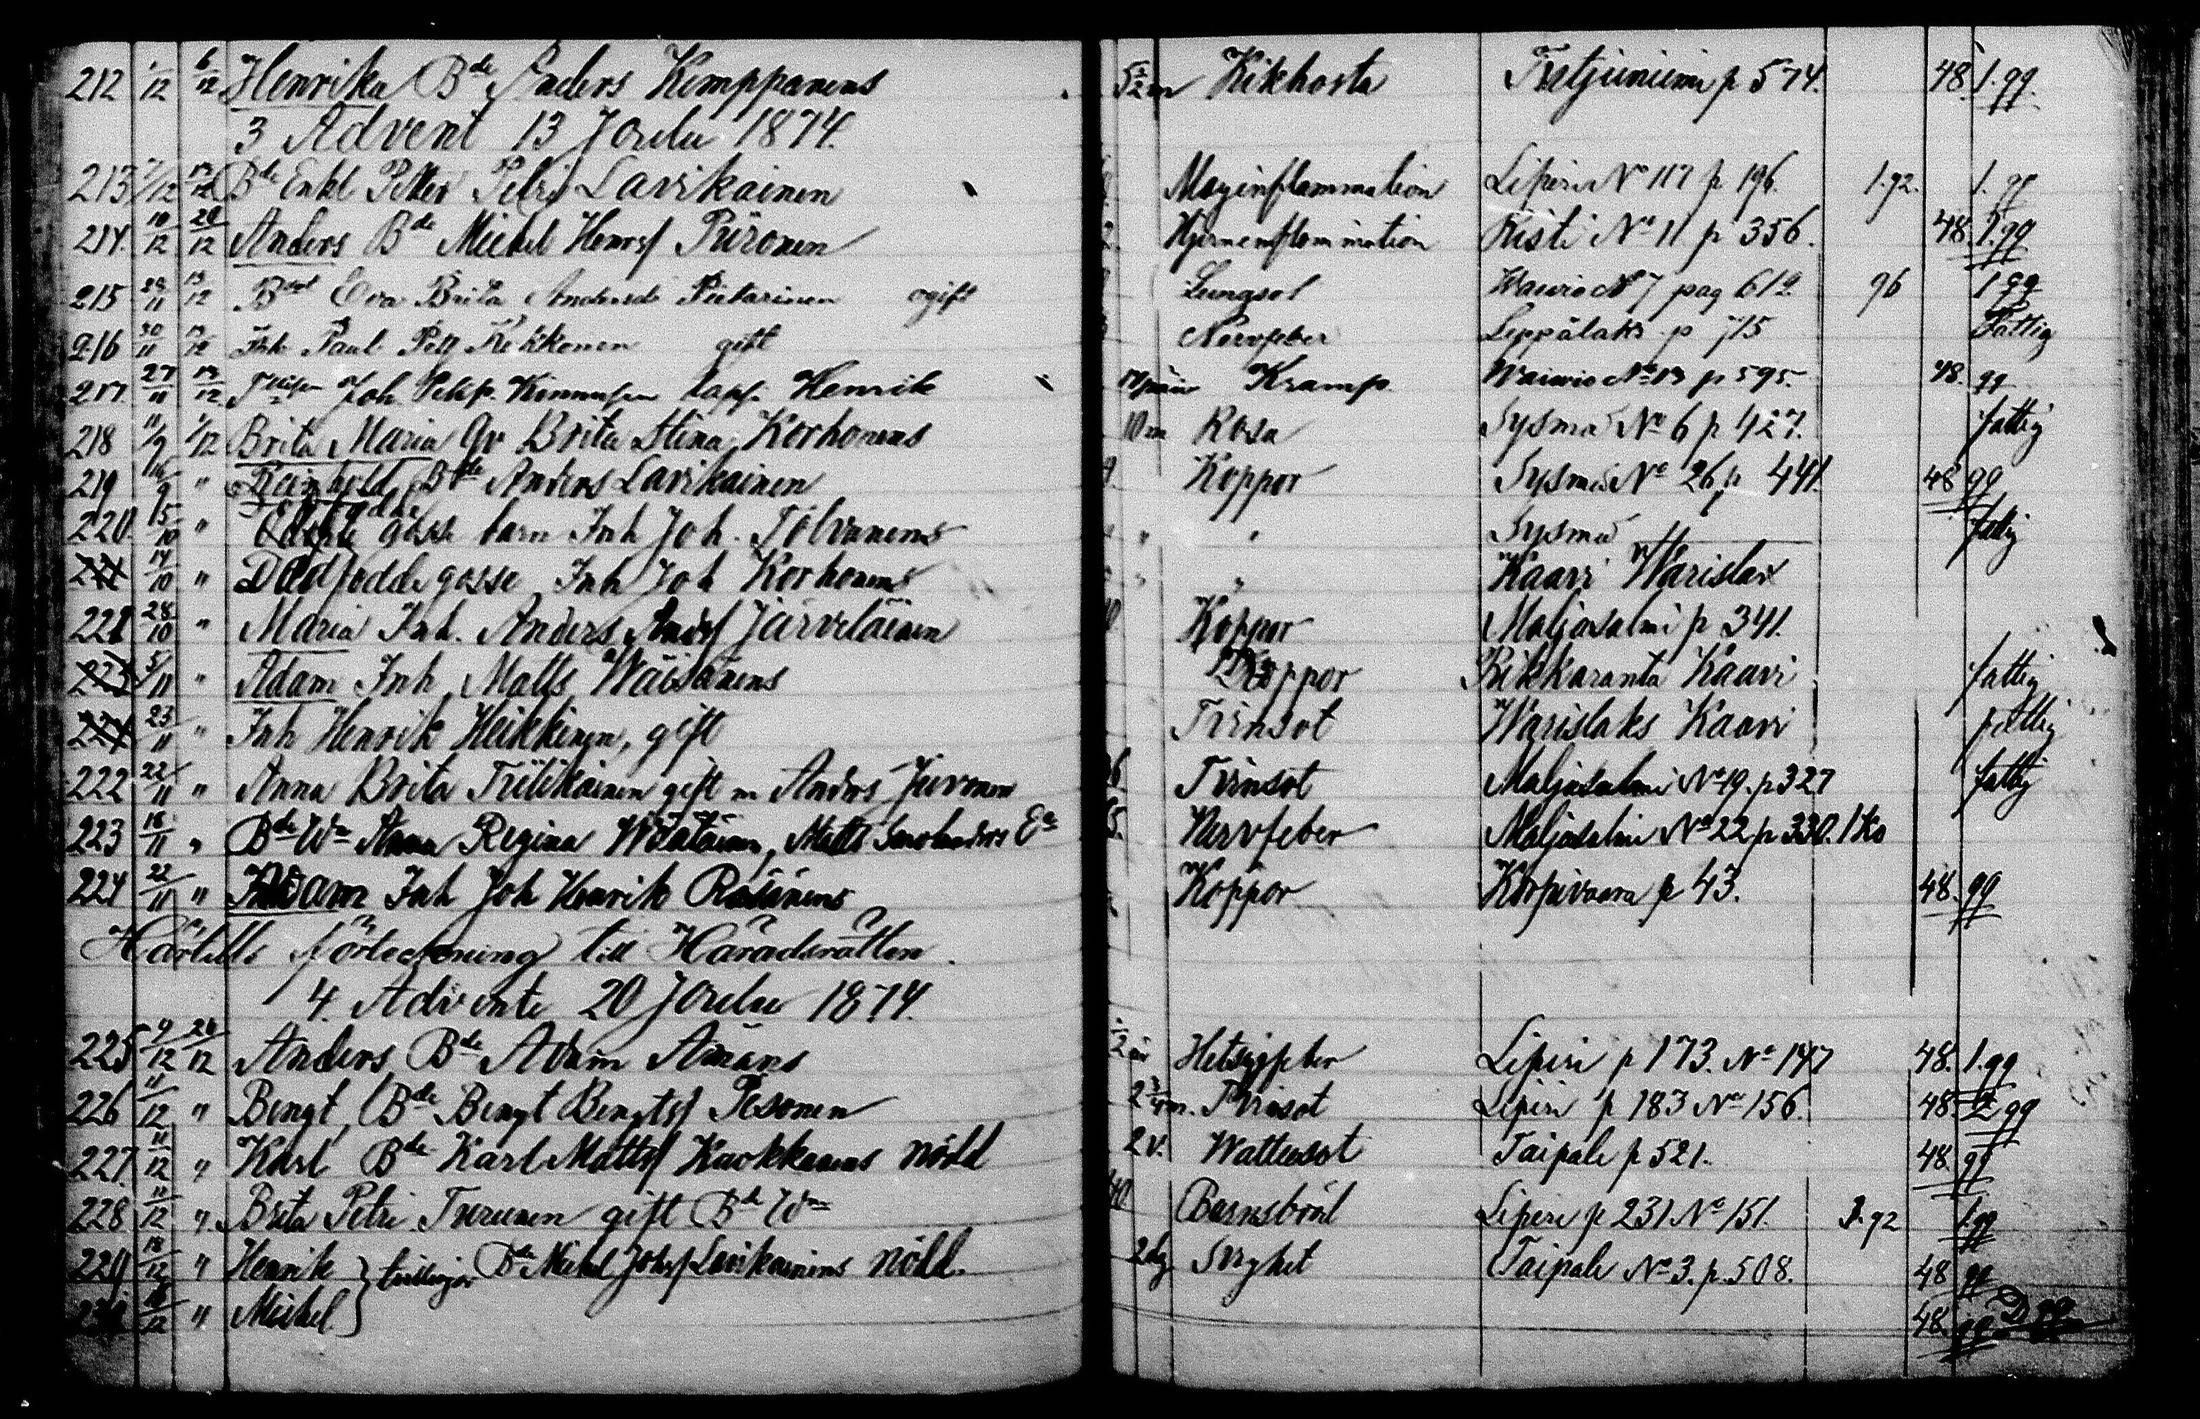 212 1/12 6/12 Henrika Bde Anders Kemppanens 5 1/2 m Kikhosta p 574. 48. 1. gg.
3 Advent 13 Xbr 1874.
213 7/12 13/12 Bde Enkl Petter Petrj Lavikainen Maginflammation Liperi No 117 p 196. 1.92. 1. gg
214. 10/12 20/12 Anders Bde Michel Henrsj Piironen Hjerneinflammation Risti No 11 p 356. 48. 1. gg
215 29/11 13/12 Eva Brita Andersdr Pietarinen ogift Lungsot Waivio N 7 pag 612 96 1 gg
216 30/11 13/12 Inh Paul Pett Kekkonen gift Nervfeber Leppälaks p 715 Fattig
217 27/11 13/12 Joh. Henrik Kramp Waivio No 13 p 595. 48. gg
218 11/9 /12 Brita Maria Qv Brita Stina Korhonens 10 m Rosa Sysmä No 6 p 427. fattig
219 16/9 " Reinhold Bde Anders Lavikainen Koppor Sysmä No 26 p 441. 48 gg
220. 15/10 " gosse barn Inh Joh. Tolvanens " " Sysmä fattig
221 14/10 " Dödfödde gosse Inh Joh Korhonens " " Kaavi Warislax
221 28/10 " Maria Inh. Anders Andsj Järveläinen Koppor Maljasalmi p 341.
223 5/11 " Adam Inh Matts Wäisänens Koppor Rikkaranta Kaavi fattig
224 23/11 " Inh Henrik Heikkinen, gift Tvinsot Warislaks Kaavi fattig
222 22/11 " Anna Brita Tiilikainen gift m Anders Juvonen Tvinsot Maljasalmi No 19. p 327 fattig
223 18/11 " Bde Wn Anna Regina Wäätäinen, Matts Smolanders Ea Nervfeber Maljasalmi No 22 p 330. 1 ko
224 22/11 " Adam Inh Joh Henrik Räsänens Koppor Korpivaara p 43. 48. gg
Härtills förteckning till Häradsrätten.
4. Advent 20 Xbr 1874.
225 9/12 20/12 Anders, Bde Adam Asikains 1/2 år Hetsigfeber Liperi p 173. No 147 48. 1. gg
226 11/12 " Bengt, Bde Bengt Bengtsj Pesonen 2 3/4 m. Tvinsot Liperi p 183 No 156. 48. gg
227. 11/12 " Karl Bde Karl Mattsj Kuokkanens nöld 2 v. Wattusot Taipale p 521. 48. gg
228 11/12 " Brita Petri Turunen gift Bde Wn 40 Barnsbörd Liperi p 231 No 151. 1. 92 1. gg
229 18/12 " Henrik } tvillingar Bde Michel Johsj Lavikainens nöld. 2 dg Svaghet Taipale No 3. p. 508. 48 gg
230 16/12 " Michel 48. gg